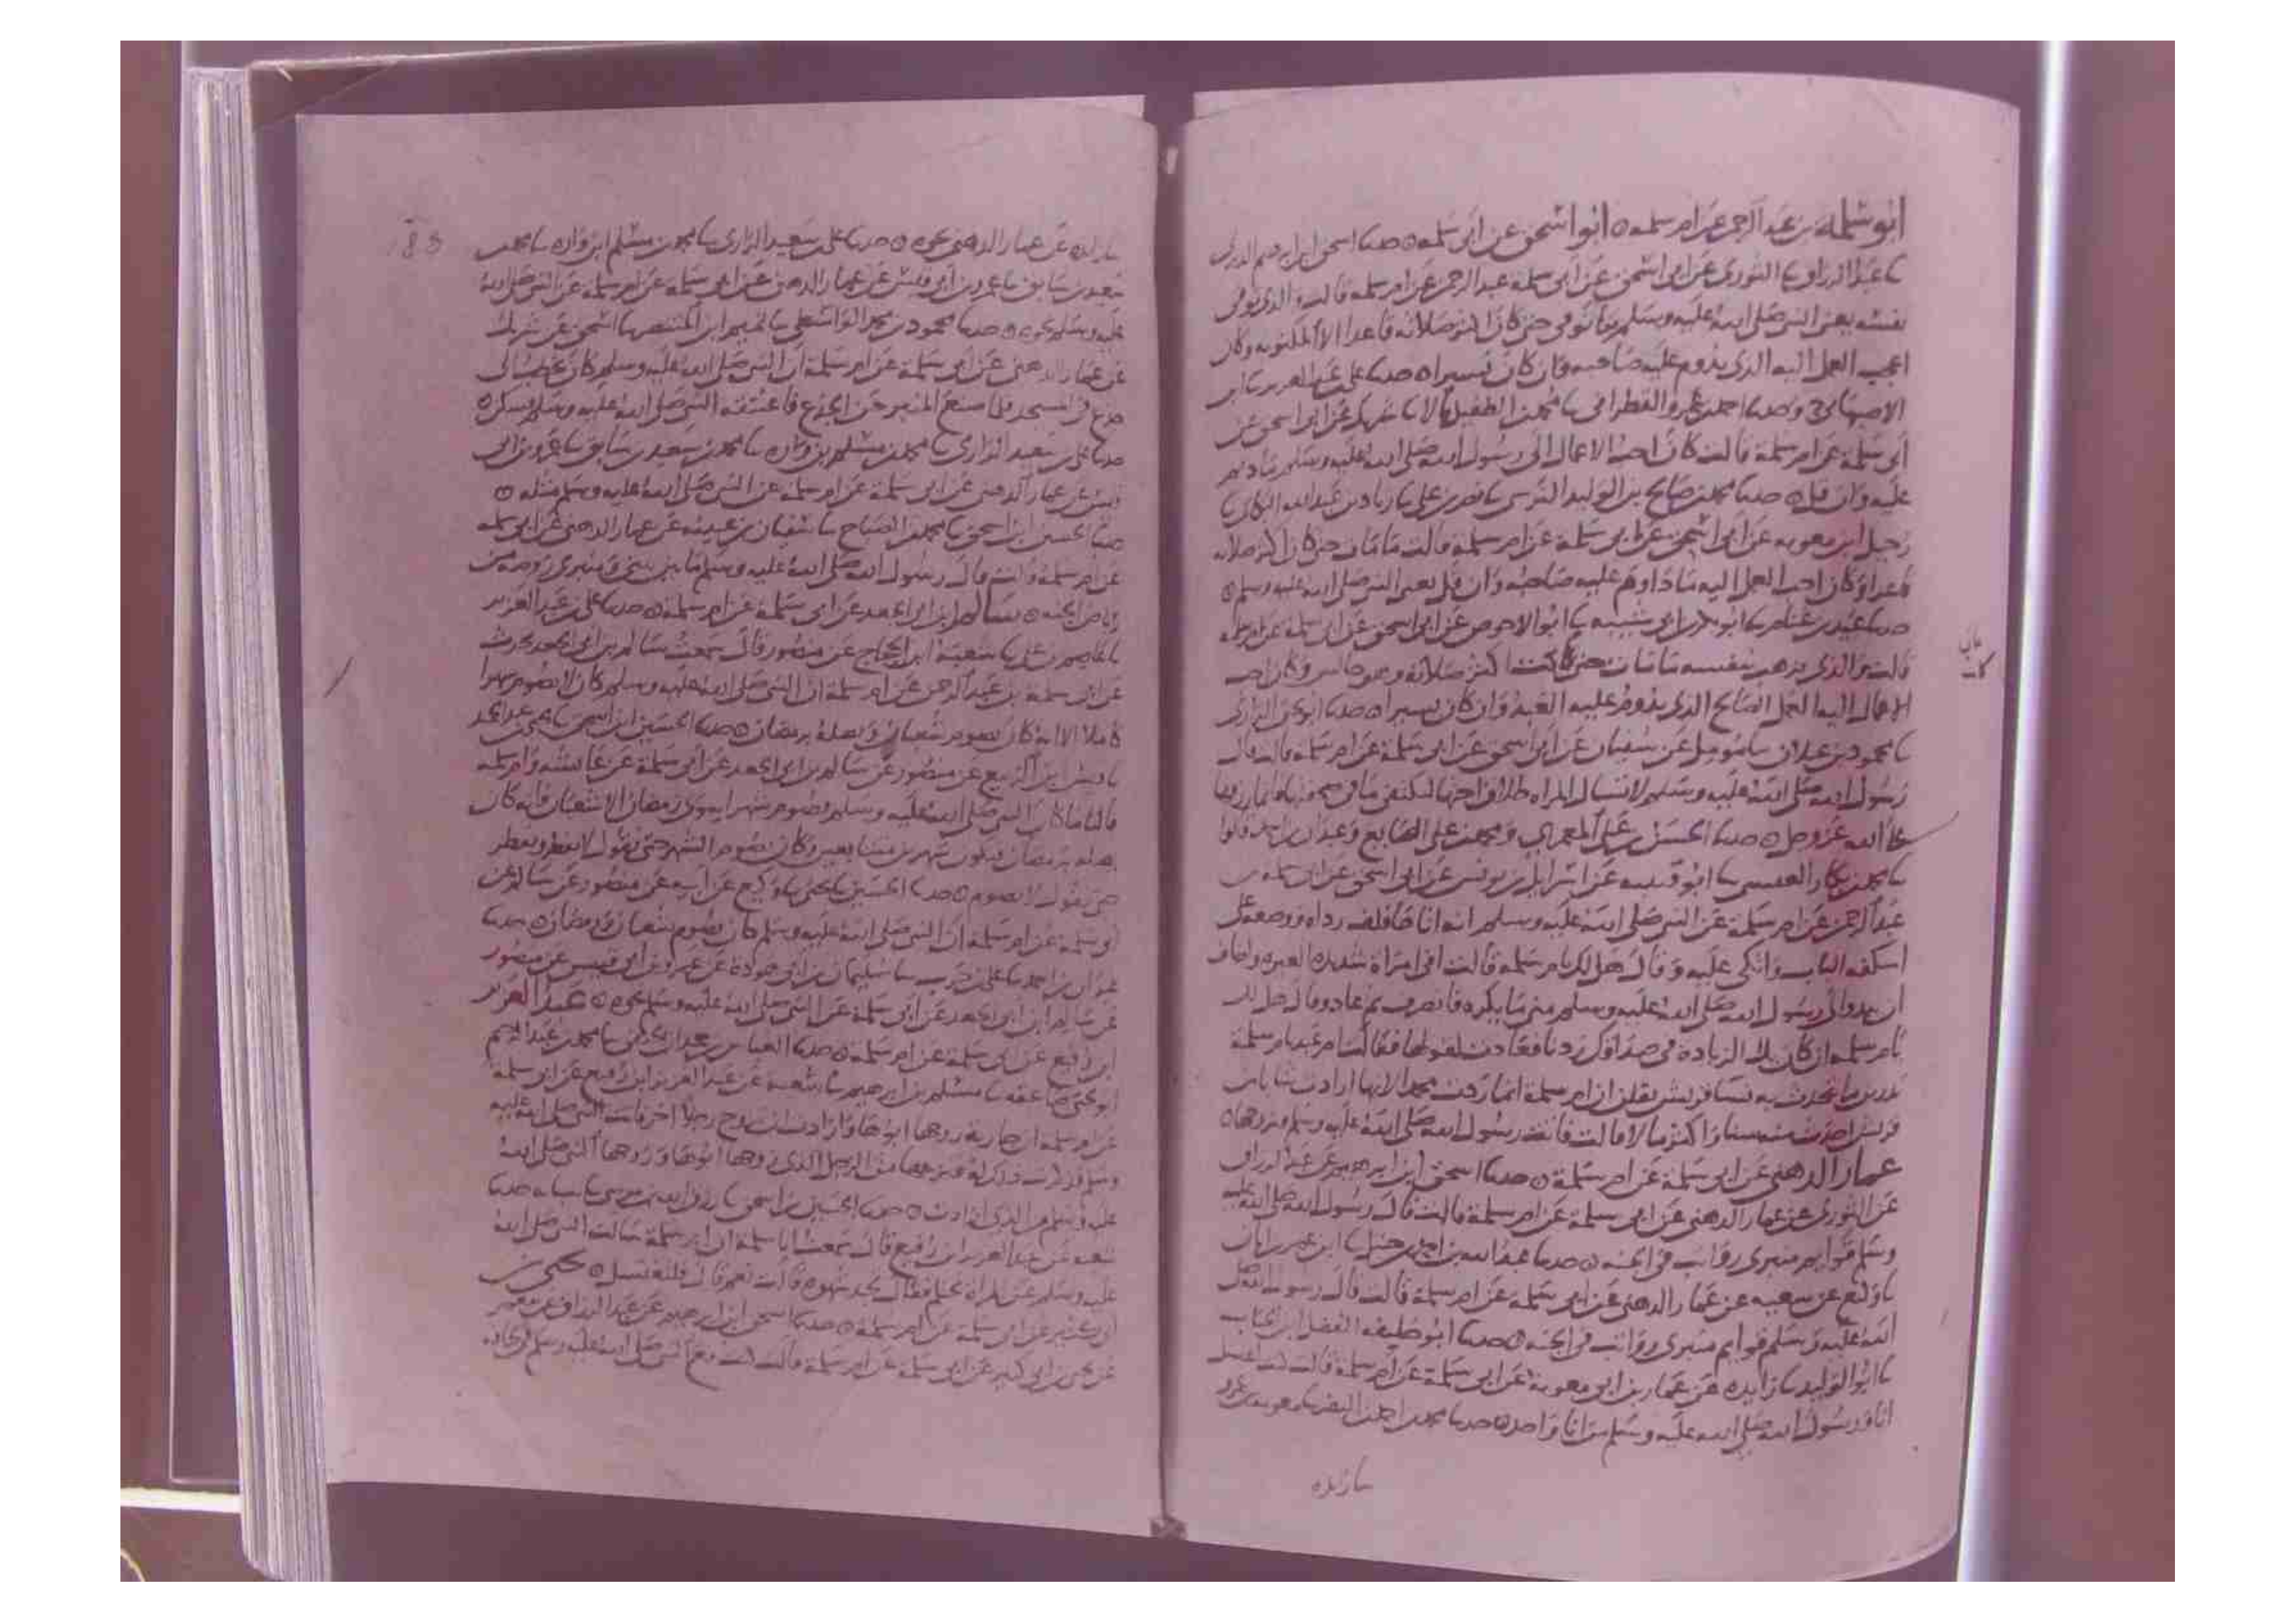 ابو سلمة بن عبد الرحمن عن ام سلمة ابو اسحق عن ابي سلمة حدثنا اسحق بن ابراهيم الدبري
نا عبد الرزاق نا الثوري عن ابي اسحق عن ابي سلمة عبد الرحمن عن ام سلمة قالت والذي توفى
نفسه يعني النبي صلى الله عليه وسلم ما توفي حتى كان اكثر صلاته قاعدا الا المكتوبة وكان
اعجب العمل اليه الذي يدوم عليه صاحبه وان كان يسيرا حدثنا علي بن عبد العزيز نا ابن
الاصبهاني وحدثنا احمد بن عمرو القطراني نا محمد بن الطفيل قالا نا شريك عن ابي اسحق عن
ابي سلمة عن ام سلمة قالت كان احب الاعمال الى رسول الله صلى الله عليه وسلم ما ديم
عليه وان قل حدثنا محمد بن صالح بن الوليد النرسي نا نصر بن علي نا زياد بن عبد الله البكائي نا
رحيل ابن معوية عن ابي اسحق عن ابي سلمة عن ام سلمة قالت ما مات حتى كان اكثر صلاته
قاعدا وكان احب العمل اليه ما داوم عليه صاحبه وان قل يعني النبي صلى الله عليه وسلم
حدثنا عبيد بن غنام نا ابو بكر بن ابي شيبة نا ابو الاحوص عن ابي اسحق عن ابي سلمة عن ام سلمة
قالت والذي ذهب بنفسه ما مات حتى كانت اكثر صلاته وهو جالس وكان احب
الاعمال اليه العمل الصالح الذي يدوم عليه العبد وان كان يسيرا حدثنا ابو يحيى الرازي
نا محمود بن غيلان نا مؤمل عن سفيان عن ابي اسحق عن ابي سلمة عن ام سلمة قالت قال
رسول الله صلى الله عليه وسلم لا تسال المراة طلاق اختها لتكتفي ما في صحفتها فانما رزقها
على الله عز وجل حدثنا الحسن بن علي المعمري ومحمد بن علي الصايغ وعبدان بن احمد قالوا
نا محمد بن بكار العيسي نا ابو قتيبة عن اسرائيل بن يونس عن ابي اسحق عن ابي سلمة بن
عبد الرحمن عن ام سلمة عن النبي صلى الله عليه وسلم انه اتاها فلف رداه ووضعه على
اسكفة الباب واتكى عليه وقال هل لك يا ام سلمة قالت اني امراة شديدة الغيرة واخاف
ان يبدو الى رسول الله صلى الله عليه وسلم مني ما يكره فانصرف ثم عاد وقال هل لك
يا ام سلمة ان كان بك الزيادة في صداقك زدنا فعادت لقولها فقالت ام عبد يا ام سلمة
تدرين ما يتحدث به نسا قريش يقلن ان ام سلمة انما ردت محمدا لانها ارادت شابا من
قريش احدث منه سنا واكثر مالا قالت فاتت رسول الله صلى الله عليه وسلم فتزوجها
عمار الدهني عن ابي سلمة عن ام سلمة حدثنا اسحق ابن ابراهيم عن عبد الرزاق
عن الثوري عن عمار الدهني عن ابي سلمة عن ام سلمة قالت قال رسول الله صلى الله عليه
وسلم قوايم منبري رواتب في الجنة حدثنا عبد الله بن احمد بن حنبل نا ابن عمر بن ابان
نا وكيع عن شعبه عن عمار الدهني عن ابي سلمة عن ام سلمة قالت قال رسول الله صلى
الله عليه وسلم قوايم منبري رواتب في الجنة حدثنا ابو خليفة الفضل ابن الحباب
نا ابو الوليد نا زايده عن عمار بن ابي معوية عن ابي سلمة عن ام سلمة قالت كنت اغتسل
انا ورسول الله صلى الله عليه وسلم من انا واحد حدثنا محمد بن احمد بن النضر نا معوية بن عمرو
نا زايده
نا زايده عن عمار الدهني نحوه حدثنا علي بن سعيد الرازي نا محمد بن مسلم ابن واره نا محمد بن
سعيد بن سابق نا عمرو بن ابي قيس عن عمار الدهني عن ابي سلمة عن ام سلمة عن النبي صلى الله
عليه وسلم نحوه حدثنا محمود بن محمد الواسطي نا تميم ابن المنتصر نا اسحق عن شريك
عن عمار الدهني عن ابي سلمة عن ام سلمة ان النبي صلى الله عليه وسلم كان يخطب الى
جذع في المسجد فلما صنع المنبر حن الجذع فاعتنقه النبي صلى الله عليه وسلم فسكن
حدثنا علي بن سعيد الرازي نا محمد بن مسلم بن واره نا محمد بن سعيد بن سابق نا عمرو بن ابي
قيس عن عمار الدهني عن ابي سلمة عن ام سلمة عن النبي صلى الله عليه وسلم مثله
حدثنا الحسين ابن اسحق نا محمد بن الصباح نا سفيان بن عيينة عن عمار الدهني عن ابي سلمة
عن ام سلمة قالت قال رسول الله صلى الله عليه وسلم ما بين بيتي ومنبري روضة من
رياض الجنة سالم ابن ابي الجعد عن ابي سلمة عن ام سلمة حدثنا علي بن عبد العزيز
نا عاصم بن علي نا شعبة ابن الحجاج عن منصور قال سمعت سالم بن ابي الجعد يحدث
عن ابي سلمة بن عبد الرحمن عن ام سلمة ان النبي صلى الله عليه وسلم كان لا يصوم شهرا
كاملا الا انه كان يصوم شعبان ويصله برمضان حدثنا الحسين ابن اسحق نا يحيى
نا قيس ابن الربيع عن منصور عن سالم بن ابي الجعد عن ابي سلمة عن عايشة وام سلمة
قالتا ما كان النبي صلى الله عليه وسلم يصوم شهرا سوى رمضان الا شعبان فانه كان
يصله برمضان فيكون شهرين متتابعين وكان يصوم الشهر حتى نقول لا يفطر ويفطر
حتى نقول لا يصوم حدثنا الحسين نا يحيى نا وكيع عن ابيه عن منصور عن سالم عن
ابي سلمة عن ام سلمة ان النبي صلى الله عليه وسلم كان يصوم شعبان ورمضان حدثنا
عبدان بن احمد نا علي بن حرب نا سليمان بن ابي هوذة عن عمرو بن ابي قيس عن منصور
عن سالم ابن ابي الجعد عن ابي سلمة عن النبي صلى الله عليه وسلم نحوه عبد العزيز
ابن رفيع عن ابي سلمة عن ام سلمة حدثنا العباس بن حمدان الحنفي نا محمد بن عبد الرحيم
ابو يحيى صاعقة نا مسلم بن ابراهيم نا شعبة عن عبد العزيز ابن رفيع عن ابي سلمة
عن ام سلمة ان جارية زوجها ابوها وارادت ان تزوج رجلا اخر فاتت النبي صلى الله عليه
وسلم فذكرت ذلك له فنزعها من الرجل الذي زوجها ابوها وزوجها النبي صلى الله
عليه وسلم من الذي ارادت حدثنا الحسين بن اسحق نا رزق الله بن موسى نا شبابه حدثنا
شعبة عن عبد العزيز ابن رفيع قال سمعت ابا سلمة ان ام سلمة سالت النبي صلى الله
عليه وسلم عن المراة تحتلم فقال تجد شهوة قالت نعم قال فلتغتسل يحيى بن
ابي كثير عن ابي سلمة عن ام سلمة حدثنا اسحق ابن ابراهيم عن عبد الرزاق عن معمر
عن يحيى بن ابي كثير عن ابي سلمة عن ام سلمة قالت كنت مع النبي صلى الله عليه وسلم في لحافه